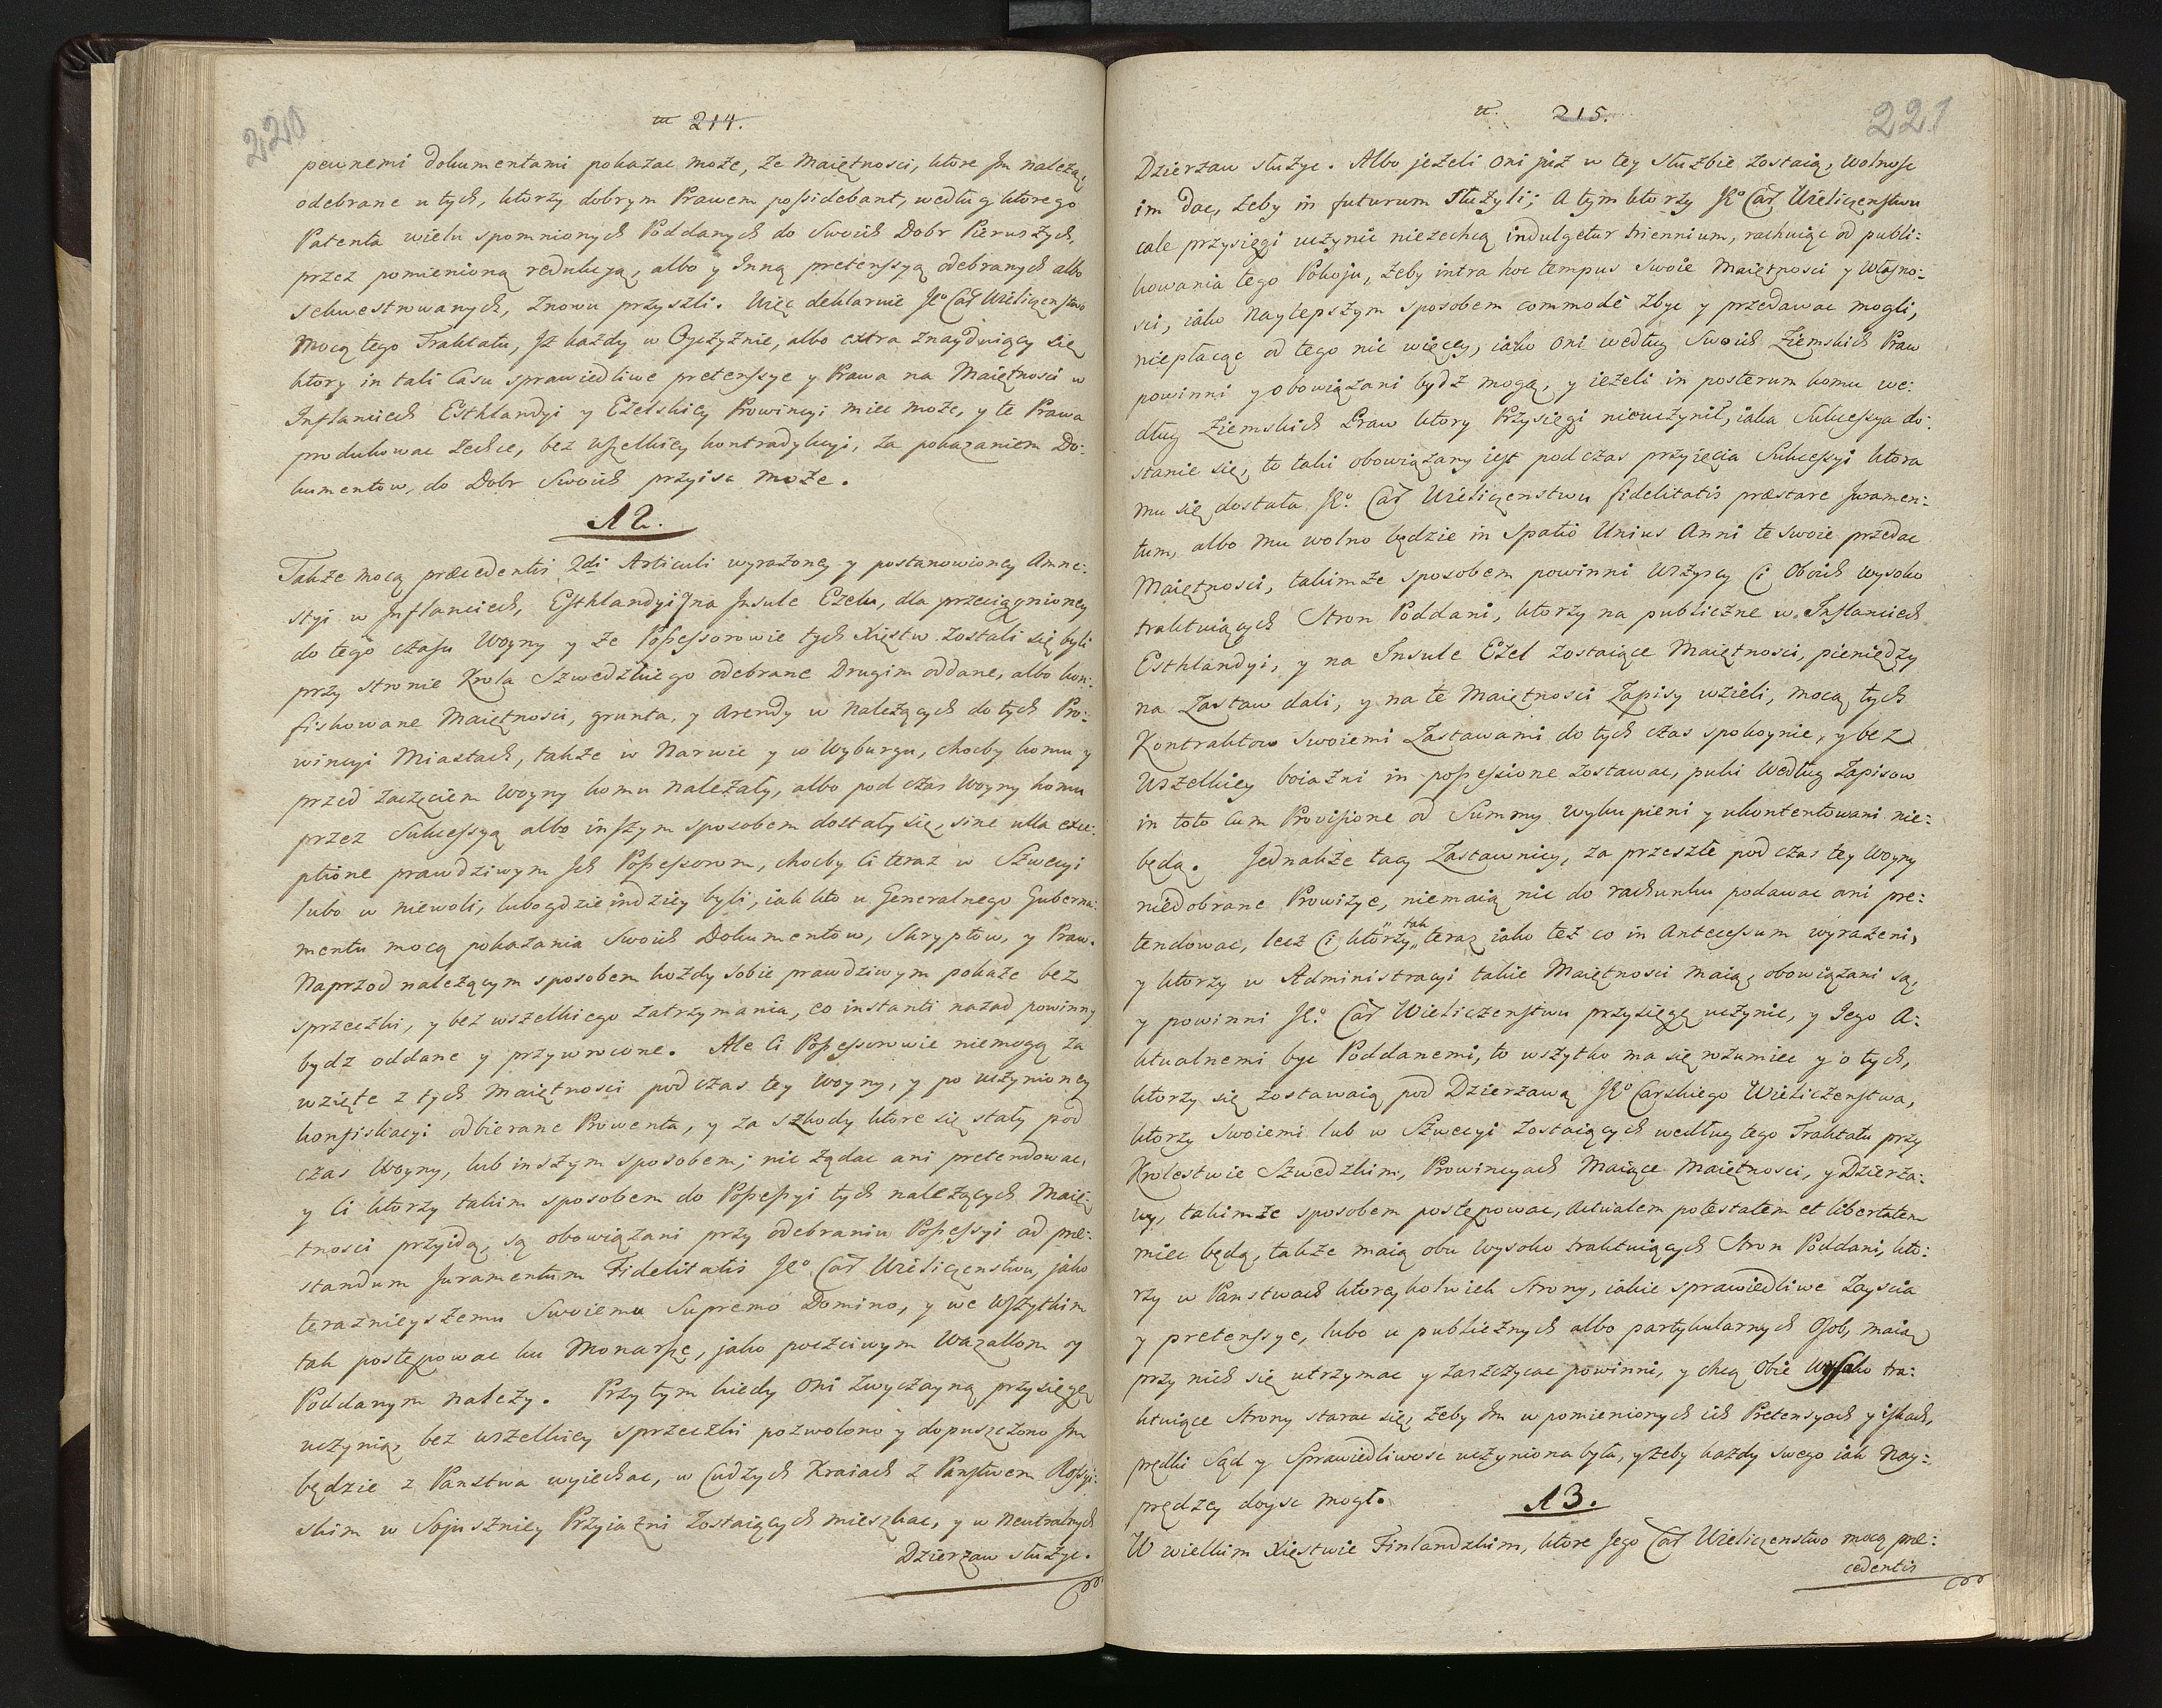 220
214.
pewnemi dokumentami pokazac może, że Maiętnosci, ktore Im należą,
odebrane u tych, ktorzy dobrym Prawem possidebant, według ktorego
Patenta wielu spomnionych Poddanych do Swoich Dobr Pierwszych,
przez pomienioną redukcyą, albo y Inną pretensyą odebranych albo
sekwestrowanych, znowu przyszli. Więc deklaruie Je° Car Wieliczenstwo
Mocą tego Traktatu, Iż każdy w Oyczyznie, albo extra znayduiący się
ktory in tali Casu sprawiedliwe pretensye y Prawa na Maiętnosci w
Inflanciech Esthlandyi y Ezelskiey Prowincyi miec może, y te Prawa
produkowac zechce, bez wszelkiey kontradykcyi, za pokazaniem Do:
kumentow, do Dobr Swoich przyisc może.
12.
Także mocą præcedentis 2di Articuli wyrażoney y postanowioney Amne:
styi w Inflanciech, Esthlandyi y na Insule Ezelu, dla przeciągnioney
do tego czasu Woyny y że Possessorowie tych Xięstw zostali się byli
przy stronie Krola Szwedzkiego odebrane Drugim oddane, albo kon:
fiskowane Maiętnosci, grunta, y Arendy w Należących do tych Pro:
wincyi Miastach, także w Narwie y w Wyburgu, chocby komu y
przed zaczęciem Woyny komu należały, albo pod czas Woyny komu
przez Sukcessyą albo inszym sposobem dostały się, sine ulla exce:
ptione prawdziwym Ich Possessorom, chocby Ci teraz w Szwecyi
lubo w niewoli, lubo gdzie indziey byli, iak kto u Generalnego Guberna:
mentu mocą pokazania Swoich Dokumentow, Skryptow, y Praw.
Naprzod należącym sposobem kożdy sobie prawdziwym pokaże bez
sprzeczki, y bez wszelkiego zatrzymania, co instanti nazad powinny
bydz oddane y przywrocone. Ale Ci Possessorowie niemogą za
wzięte z tych Maiętnosci pod czas tey Woyny, y po uczynioney
konfiskacyi odbierane Prowenta, y za szkody ktore się stały pod
czas Woyny, lub inszym sposobem; nic żądac ani pretendowac,
y Ci ktorzy takim sposobem do Possessyi tych należących Maię:
tnosci przyidą, są obowiązani przy odebraniu Possessyi ad præ:
standum Juramentum Fidelitatis Je° Car Wieliczenstwu, jako
teraznieyszemu Swoiemu Supremo Domino, y we Wszytkim
tak postępowac ku Monarsze, jako poczciwym Wazallom y
Poddanym należy. Przy tym kiedy Oni zwyczayną przysięgę
uczynią, bez wszelkiey sprzeczki pozwolono y dopuszczono Im
będzie z Panstwa wyiechac, w Cudzych Kraiach z Panstwem Rossyi:
skim w Sojuszniey Przyiazni zostaiących mieszkac, y w Neutralnych
Dzierzaw służyc.
221
215.
Dzierzaw służyc. Albo jeżeli Oni już w tey służbie zostaią, Wolnosc
im dac, żeby in futurum służyli; A tym ktorzy Je° Car Wieliczenstwu
cale przysięgi uczynic niezechcą indulgetur triennium, rachuiąc od publi:
kowania tego Pokoju, żeby intra hoc tempus swoie Maiętnosci y Własno:
sci, iako Naylepszym sposobem commodè zbyc y przedawac mogli,
niepłacąc od tego nic więcey, iako Oni według Swoich Ziemskich Praw
powinni y obowiązani bydz mogą, y ieżeli in posterum komu we:
dług Ziemskich Praw ktory Przysięgi nieuczynił, iaka Sukcessya do:
stanie się, to taki obowiązany iest pod czas przyięcia Sukcessyi ktora
mu się dostała Je°. Car Wieliczenstwu fidelitatis præstare Juramen:
tum, albo mu wolno będzie in Spatio Unius Anni te swoie przedac
Maiętnosci, takimże sposobem powinni Wszyscy Ci Oboich wysoko
traktuiących Stron Poddani, ktorzy na publiczne w Inflanciech
Esthlandyi, y na Insule Ezel zostaiące Maiętnosci, pieniędzy
na Zastaw dali, y na te Maiętnosci Zapisy wzieli, mocą tych
Kontraktow Swoiemi Zastawami do tych czas spokoynie, y bez
Wszelkiey boiazni in possessione zostawac, puki Według Zapisow
in toto Cum Provisione od Summy wykupieni y ukontentowani nie:
będą. Jednakże tacy Zastawnicy, za przeszłe pod czas tey Woyny
niedobrane Prowizye, niemaią nic do rachunku podawac ani pre:
tendowac, lecz Ci ktorzy tak teraz iako też co in Antecessum wyrażeni,
y ktorzy w Administracyi takie Maiętnosci maią, obowiązani są,
y powinni Je°. Car Wieliczenstwu przysięgę uczynic, y Jego A:
ktualnemi byc Poddanemi, to wszytko ma się rozumiec y o tych,
ktorzy się zostawaią pod Dzierzawą Je° Carskiego Wieliczenstwa,
ktorzy Swoiemi lub w Szwecyi zostaiących według tego Traktatu przy
Krolestwie Szwedzkim, Prowincyach Maiące Maiętnosci, y Dzierza:
wy, takimże sposobem postępowac, Actualem potestatem et libertatem
miec będą, także maią obu Wysoko traktuiących Stron Poddani, kto:
rzy w Panstwach ktoreykolwiek Strony, iakie sprawiedliwe Zayscia
y pretensye, lubo u publicznych albo partykularnych Osob, maią
przy nich się utrzymac y zaszczycac powinni, y chcą Obie Wysoko tra:
ktuiące Strony starac się, żeby Im w pomienionych ich Pretensyach y iskach,
prędki Sąd y Sprawiedliwosc uczyniona była, y żeby każdy swego iak Nay:
prędzey doysc mogł.
13.
W wielkim Xięstwie Finlandzkim, ktore Jego Car Wieliczenstwo mocą præ:
cedentis